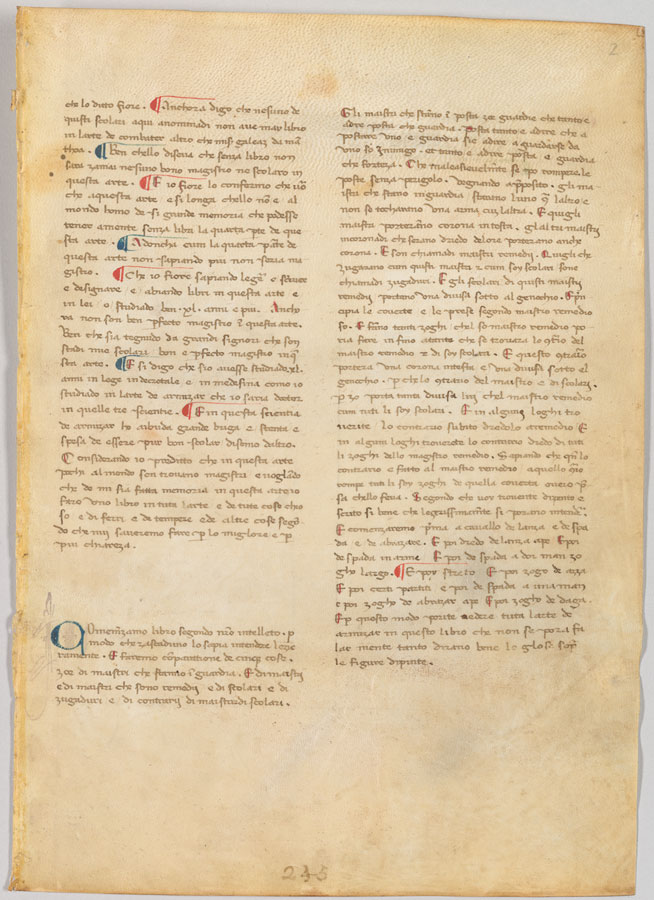 che lo ditto fiore. Anchora digo che nesuno de
questi scolari aqui anominadi non aue may libro
in larte de combater altro che miss galeaz da man
thoa. Ben chello diseua che senza libro non
sara zamai nesuno bono magistro ne scolaro in
questa arte. E io fiore lo confermo che uero
che aquesta arte e si longa chello non e al
mondo homo de si grande memoria che podesse
tenere a mente senza libri la quarta pte de que
sta arte. Adoncha cum la quarta parte de
questa arte non sapiando piu non seria ma
gistro. Che io fiore sapiando legere e scriuere
e designare e abiando libri in questa arte e
in lei o studiado ben .xl. anni e piu. Anchora
va non son ben pfecto magistro in questa arte.
Ben che sia tegnudo da grandi signori che son
studi mie scolari bon e pfecto magistro in questa
sta arte. E si digo che sio auesse studiado .xl.
anni in lege in decretale e in medesina como io
studiado in larte de armizar che io saria doctor
in quelle tre scientie. E in questa scientia
de armizar ho abiuda grande briga e stenta e
spesa de essere pur bon scolar disemo daltro.
Considerando io preditto che in questa arte
pochi al mondo sen trouano magistri e uogliando
che de mi sia fatta memoria in questa arte io
farò uno libro in tuta larte e de tute cose che io
so e de ferri e de tempere e de altre cose segon
do che mii saueremo fare p lo miglore e p
piu chiareza.
Comenzamo libro segondo nostro intelleto p
modo che zaschaduno lo sapia intendere lezie
ramente. E faremo comparatione de cinque cose.
zoe di maistri che stanno in guardia. E di maistri
e di maistri che sono remedii e di scolari e di
zugaduri e di contrarii di maistri e di scolari.
2
Gli maistri che stano in posta zoe guardie che tanto e
adire posta che guardia. Posta tanto e adire che a
postare uno e guardia sie adire a guardarse da
uno so inimigo. et tanto e adire posta e guardia
che forteza. Che maleasieuelmente se po rompere le
poste senza perigolo. Vegnando apposito. gli ma
istri che stano in guardia stareno luno contra laltro e
non se tocharano una arma cum laltra. E quigli
maistri porterano corona in testa. gli altri maistri
incoronadi che serano driedo de loro porterano anche
corona. E son chiamadi maistri remedii. Quigli che
zugarano cum questi maistri e cum soy scolari sono
chiamadi zugaduri. E gli scolari di questi maistri
remedii portano una diuisa sotto al genochio. E prin
cipia le couerte e le prese segondo maistro remedio
so. E farano tanti zoghi chel so maistro remedio po
ria fiere in fino atanto che se trouara lo contrario del
maistro remedio e di soy scolari. E questo contrario
portera una corona in testa e una diuisa sotto el
genochio. p che lo contrario del maistro e di scolari.
p zo porta tanta diuisa luy chel maistro remedio
cum tuti li soy scolari. E in alguni loghi tro
uerite lo contrario subito driedo lo remedio E
in alguni loghi trouerete lo contrario driedo di tuti
li zoghi dello magistro remedio. Sapiando che quello
contrario e fatto al maistro remedio aquello che
rompa tuti li soy zoghi de quella couerta ouero presa
sa chello feua. Segondo che uoy trouerite dipinto e
scrito si bene che lezerissimamente se porano intender.
E comenzaremo prima a cauallo de lanza e de spa
da e de abrazare. E poi driedo de lanza ape E poi
de spada in arme. E poi de spada a doi man zo
gho largo. E poy streto. E poi zogo de azza
E poi certi partiti e poi de spada a una man
e poi zogho de abrazar ape E poi zogho de daga.
E p questo modo porite uedere tuta larte de
armizar in questo libro che non se pora fa
lar niente tanto dirano bene le glose sopra
le figure dipinte.
245